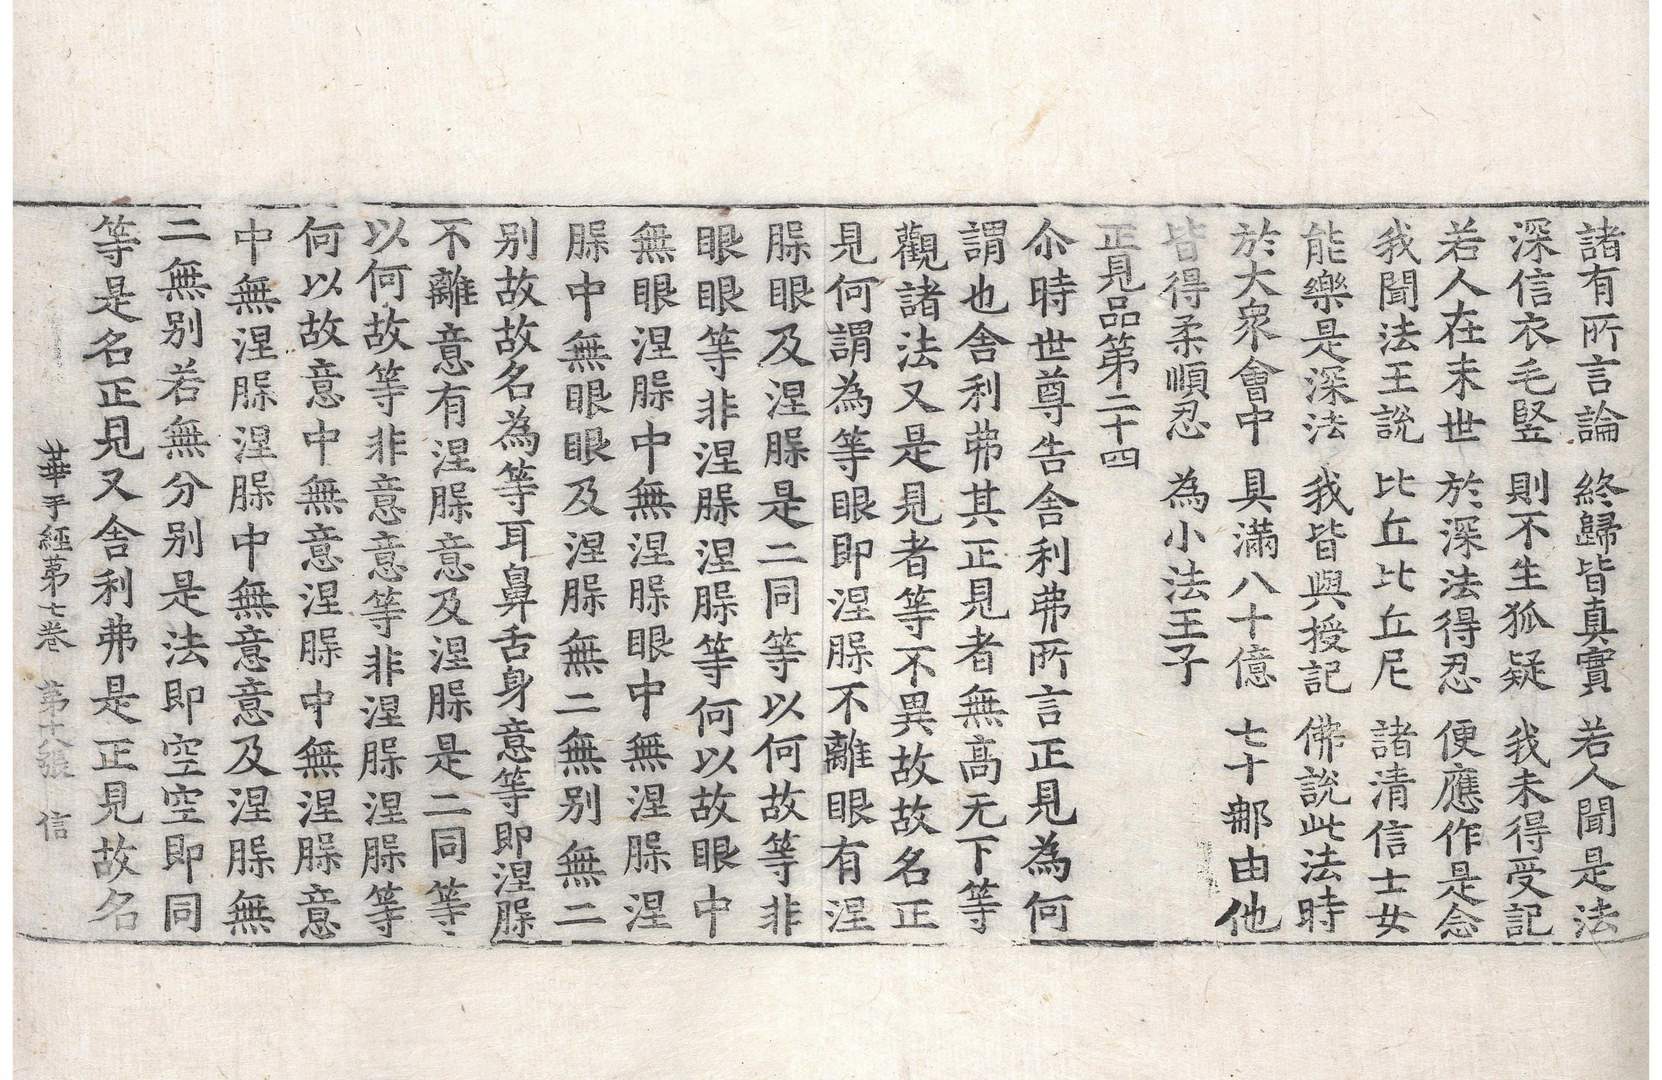 諸有所言論 終歸皆真實 若人聞是法
深信衣毛竪 則不生狐疑 我未得受記
若人在末世 於深法得忍 便應作是念
我聞法王說 比丘比丘尼 諸清信士女
能樂是深法 我皆與授記 佛說此法時
於大衆會中 具滿八十億 七十那由他
皆得柔順忍 為小法王子
正見品第二十四
尒時世尊告舍利弗所言正見為何
謂也舍利弗其正見者無高无下等
觀諸法又是見者等不異故故名正
見何謂為等眼即涅槃不離眼有涅
槃眼及涅槃是二同等以何故等非
眼眼等非涅槃涅槃等何以故眼中
無眼涅槃中無涅槃眼中無涅槃涅
槃中無眼眼及涅槃無二無別無二
別故故名為等耳鼻舌身意等即涅槃
不離意有涅槃意及涅槃是二同等
以何故等非意意等非涅槃涅槃等
何以故意中無意涅槃中無涅槃意
中無涅槃涅槃中無意意及涅槃無
二無別若無分別是法即空空即同
等是名正見又舍利弗是正見故名
華手經第七卷 第 張 信